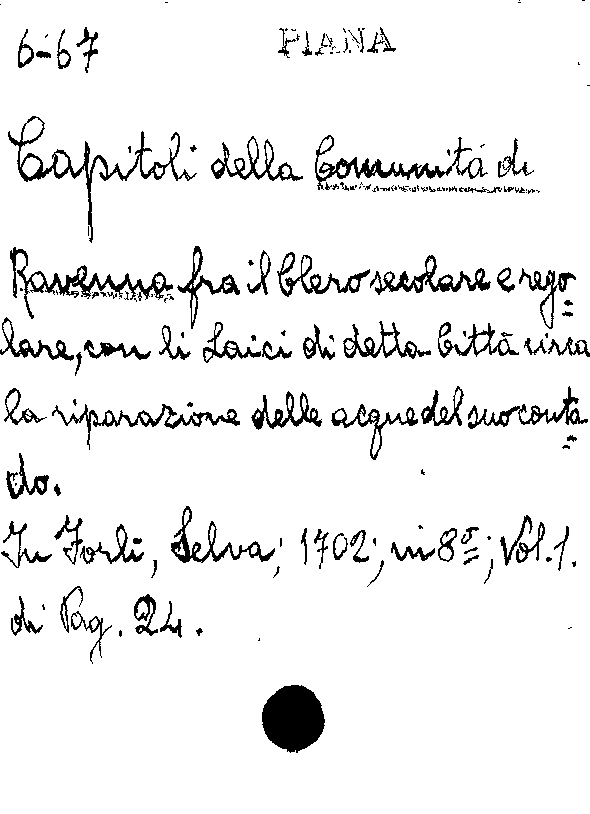 6-67 PIANA
Capitoli della Comunitá di
Ravenna fra il Clero secolare e rego=
lare, con li Laici di detta Cittá circa
la riparazione delle acque del suo conta=
do.
In Forlì, Selva; 1702; in 8º; Vol. 1.
di Pag. 24.